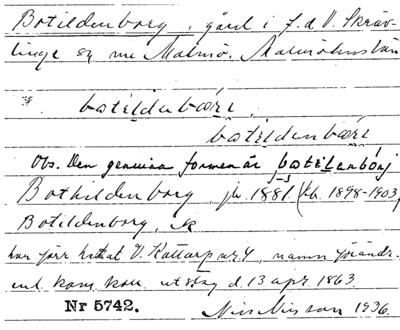 Botildenborg, gård i f.d. V. Skräv-
linge sn nu Malmö. Malmöhus län
botildenbårj,
botildenbårj
Obs. Den genuina formen är botilenbårj
Bothildenborg, jb. 1881. (kb. 1898-1903)
Botildenborg, Sk
har förr hetat V. Kattarp nr 4, namnförändr.
enl. kom. koll. utslag d. 13 apr. 1863.
Nr 5742. Nils Nilsson 1936.